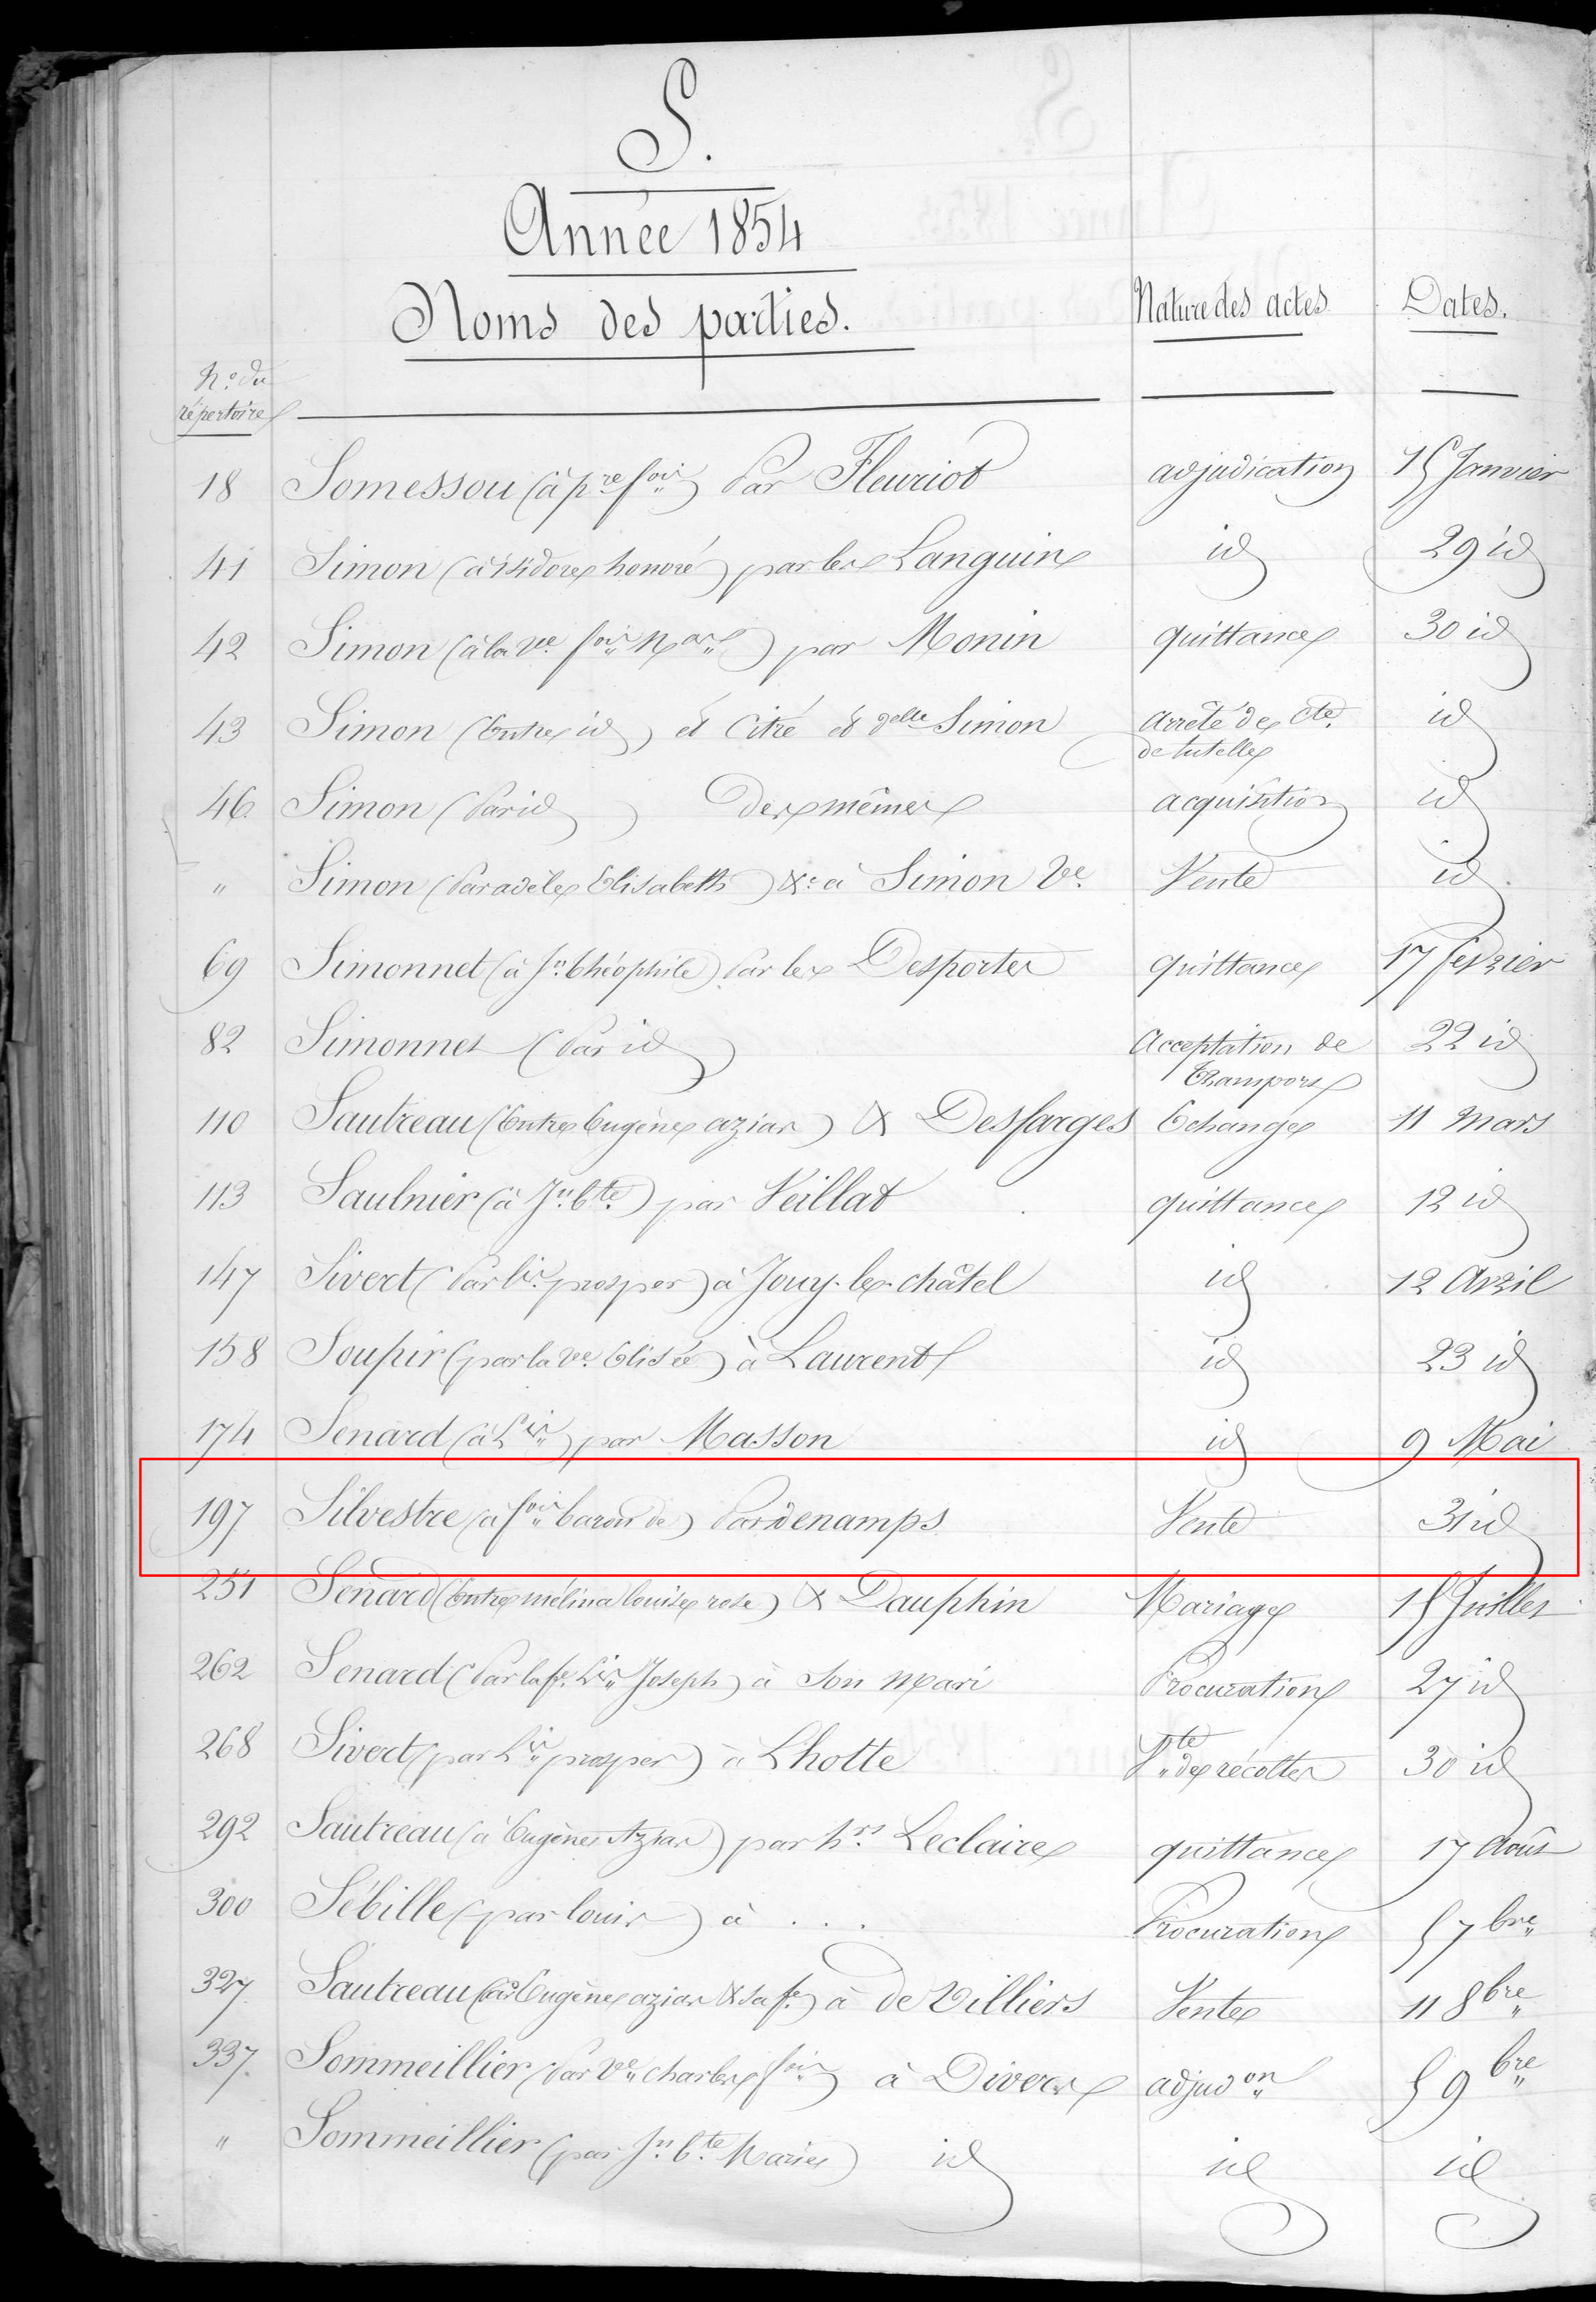 S.
Année 1854
Noms des parties.
Nature des actes
Dates.
N.o du
répertoire
18 Somessou (à p.re f.ois) Par Fleuriot adjudication 15 Janvier
41 Simon (à isidore honoré) par les Languin id 29 id
42 Simon (à la Ve f.ois N.as) par Monin quittance 30 id
43 Simon (Entre id) et Citré et delle Simon arrêté de cte. id
de tutelle
46 Simon (Par id) des mêmes acquisition id
" Simon (Par adèle Elisabeth) &c a Simon Ve Vente id
69 Simonnet (à Jn théophile) Par les Desportes quittance 17 février
82 Simonnet (Par id) Acceptation de 22 id
transport
110 Sautreau (Entre Eugène aziar) & Desfarges Echange 11 mars
113 Saulnier (à Jn bte) par Veillat quittance 12 id
147 Sivert (Par Lis prosper) à Jouy-le-châtel id 12 Avril
158 Soupir (par la Ve Elisée) à Laurent id 23 id
174 Senard (à Lis) par Masson id 9 Mai
197 Silvestre (à f.ois baron de) Par denamps Vente 31 id
251 Senard (Entre mélina louise rose) & Dauphin Mariage 15 Juillet
262 Senard (Par la fe Lis Joseph) à son mari Procuration 27 id
268 Sivert (par Lis prosper) à Lhotte Vte de récoltes 30 id
292 Sautreau (à Eugène Aziar) par hrs Leclaire quittance 17 Août
300 Sébille (par louis) à . . . Procuration 5 7bre
327 Sautreau (Par Eugène aziar & sa fe) à de Villiers Vente 11 8bre
337 Sommeillier (Par Ve charles f.ois) à Divers adjudon 5 9bre
" Sommeillier (par Jn bte Marie) id id id